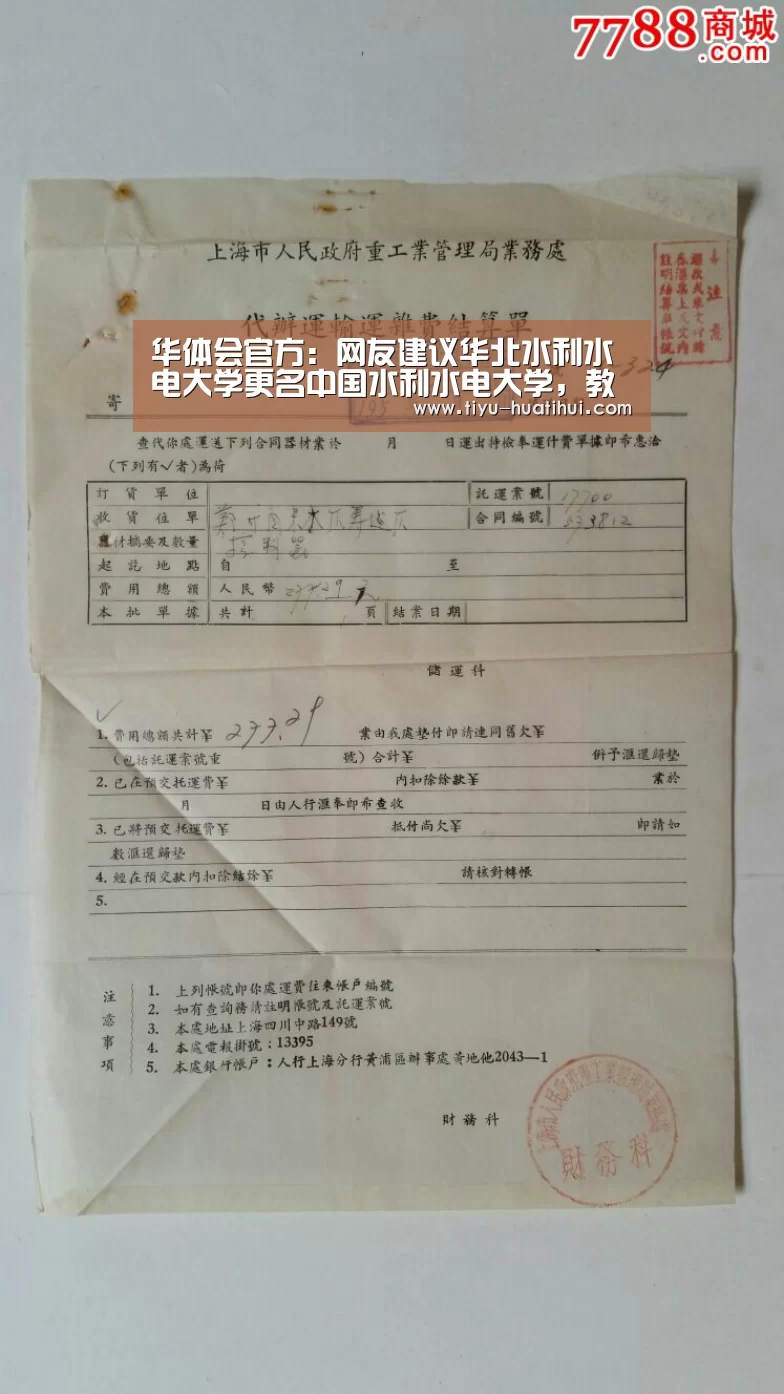 7788商城
.com
上海市人民政府重工業管理局業務處
代辦運輸運雜費結算單
注意
註明結算單帳號
华体会官方：网友建议华北水利水
电大学更名中国水利水电大学，教
www.tiyu-huatihui.com
324
寄
195
查代你處運送下列合同器材業於 月 日運出持檢奉運什費單據即希惠洽
(下列有✓者)為荷
訂貨單位 託運業號 17700
收貨位單 合同編號 53812
應付摘要及數量
起託地點 自 至
費用總額 人民幣 277.29元
本批單據 共計 頁 結業日期
儲運科
✓
1. 費用總額共計¥ 277.29 業由我處墊付即請連同舊欠¥
(包括託運業號重 號)合計¥ 併予滙還歸墊
2. 已在預交托運費¥ 內扣除餘款¥ 業於
月 日由人行滙奉即希查收
3. 已將預交托運費¥ 抵付尚欠¥ 即請如
數滙還歸墊
4. 經在預交款內扣除結餘¥ 請核對轉帳
5.
注意事項
1. 上列帳號即你處運費往來帳戶編號
2. 如有查詢務請註明帳號及託運業號
3. 本處地址上海四川中路149號
4. 本處電報掛號：13395
5. 本處銀行帳戶：人行上海分行黃浦區辦事處黃地他2043—1
財務科
上海市人民政府重工業管理局業務處
財務科